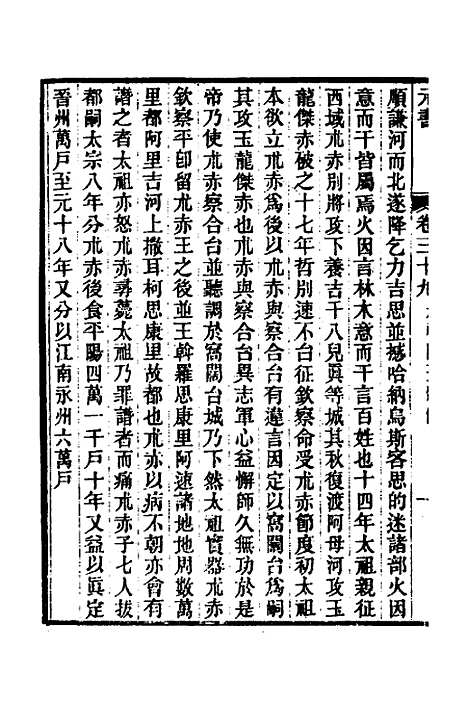 元書 卷三十九
順謙河而北遂降乞力吉思並撼哈納烏斯客思的迷諸部火因
意而干皆屬焉火因言林木意而干言百姓也十四年太祖親征
西域朮赤別將攻下養吉干八兒眞等城其秋復渡阿母河攻玉
龍傑赤破之十七年哲別速不台征欽察命受朮赤節度初太祖
本欲立朮赤爲後以朮赤與察合台有違言因定以窩闊台爲嗣
其攻玉龍傑赤也朮赤與察合台異志軍心益懈師久無功於是
帝乃使朮赤察合台並聽調於窩闊台城乃下然太祖實器朮赤
欽察平卽留朮赤王之後並王斡羅思康里阿速諸地地周數萬
里都阿里吉河上撒耳柯思康里故都也朮赤以病不朝亦會有
譖之者太祖亦怒朮赤尋薨太祖乃罪譖者而痛朮赤子七人拔
都嗣太宗八年分朮赤後食平陽四萬一千戶十年又益以眞定
晉州萬戶至元十八年又分以江南永州六萬戶